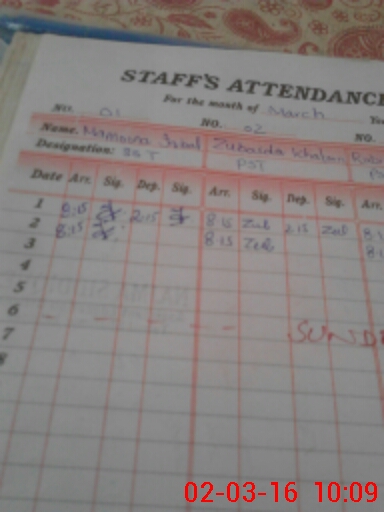 STAFF'S ATTENDANCE
For the month of March
NO. 01 NO. 02 NO.
Name. Zubaida Khatoon
Designation: SST PST
Date Arr. Sig. Dep. Sig. Arr. Sig. Dep. Sig. Arr.
1 8:15 2:15 8:15 Zub 2:15 Zub
2 8:15 8:15 Zub
3
4
5
6 SUND
7
8
02-03-16 10:09